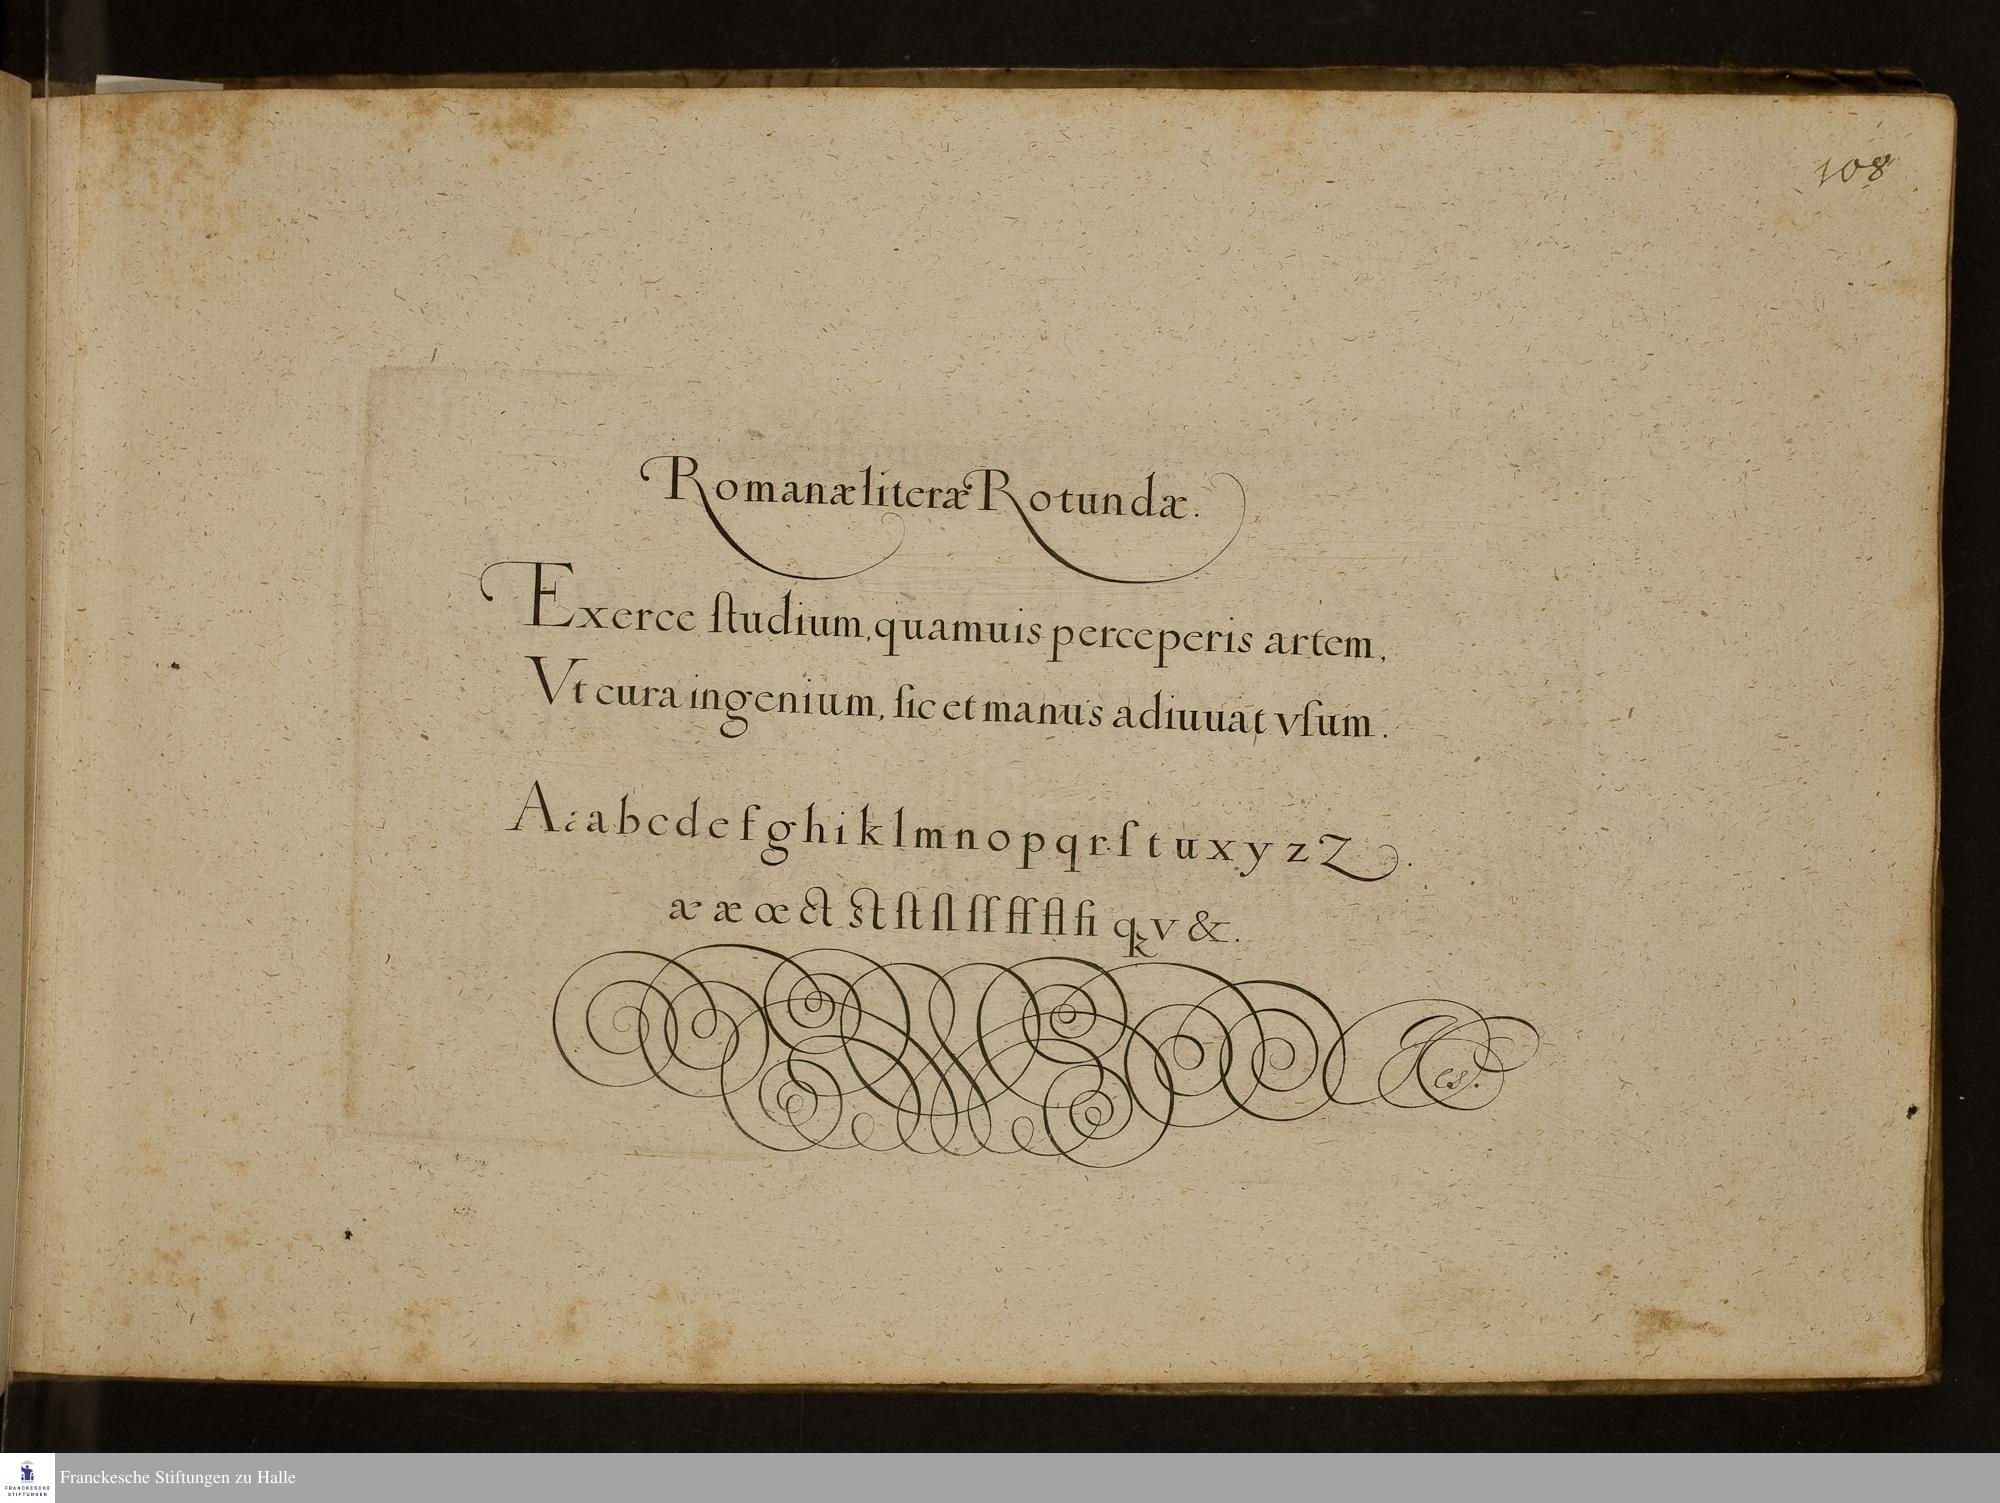 108
Romanæ literæ Rotundæ.
Exerce ſtudium, quamuis perceperis artem,
Vt cura ingenium, ſic et manus adiuuat vſum.
A a a b c d e f g h i k l m n o p q r ſ t u x y z Z.
æ æ œ ct st ſt ſl ſſ ff fl fi q k v &.
Franckesche Stiftungen zu Halle
FRANCKESCHE
STIFTUNGEN